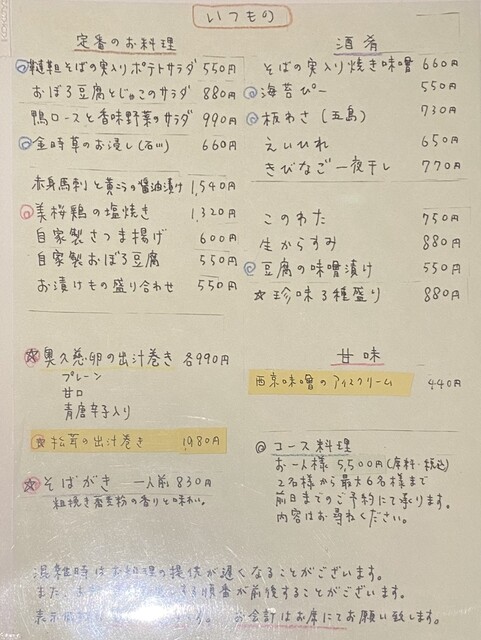 いつもの
定番のお料理
韃靼そばの実入りポテトサラダ 550円
おぼろ豆腐とじゃこのサラダ 880円
鴨ロースと香味野菜のサラダ 990円
金時草のお浸し(石川) 660円
赤身馬刺と黄ニラの醤油漬け 1,540円
美桜鶏の塩焼き 1,320円
自家製さつま揚げ 600円
自家製おぼろ豆腐 550円
お漬けもの盛り合わせ 550円
☆奥久慈卵の出汁巻き 各990円
プレーン
甘口
青唐辛子入り
☆松茸の出汁巻き 1,980円
☆そばがき 一人前 830円
粗挽き蕎麦粉の香りと味わい。
酒肴
そばの実入り焼き味噌 660円
海苔ぴー 550円
板わさ(五島) 730円
えいひれ 650円
きびなご一夜干し 770円
このわた 750円
生からすみ 880円
豆腐の味噌漬け 550円
☆珍味3種盛り 880円
甘味
西京味噌のアイスクリーム 440円
◎コース料理
お一人様 5,500円(席料・税込)
2名様から最大6名様まで
前日までのご予約にて承ります。
内容はお尋ねください。
混雑時はお料理の提供が遅くなることがございます。
また、する順番が前後することがございます。
表示価格はす。お会計はお席にてお願い致します。